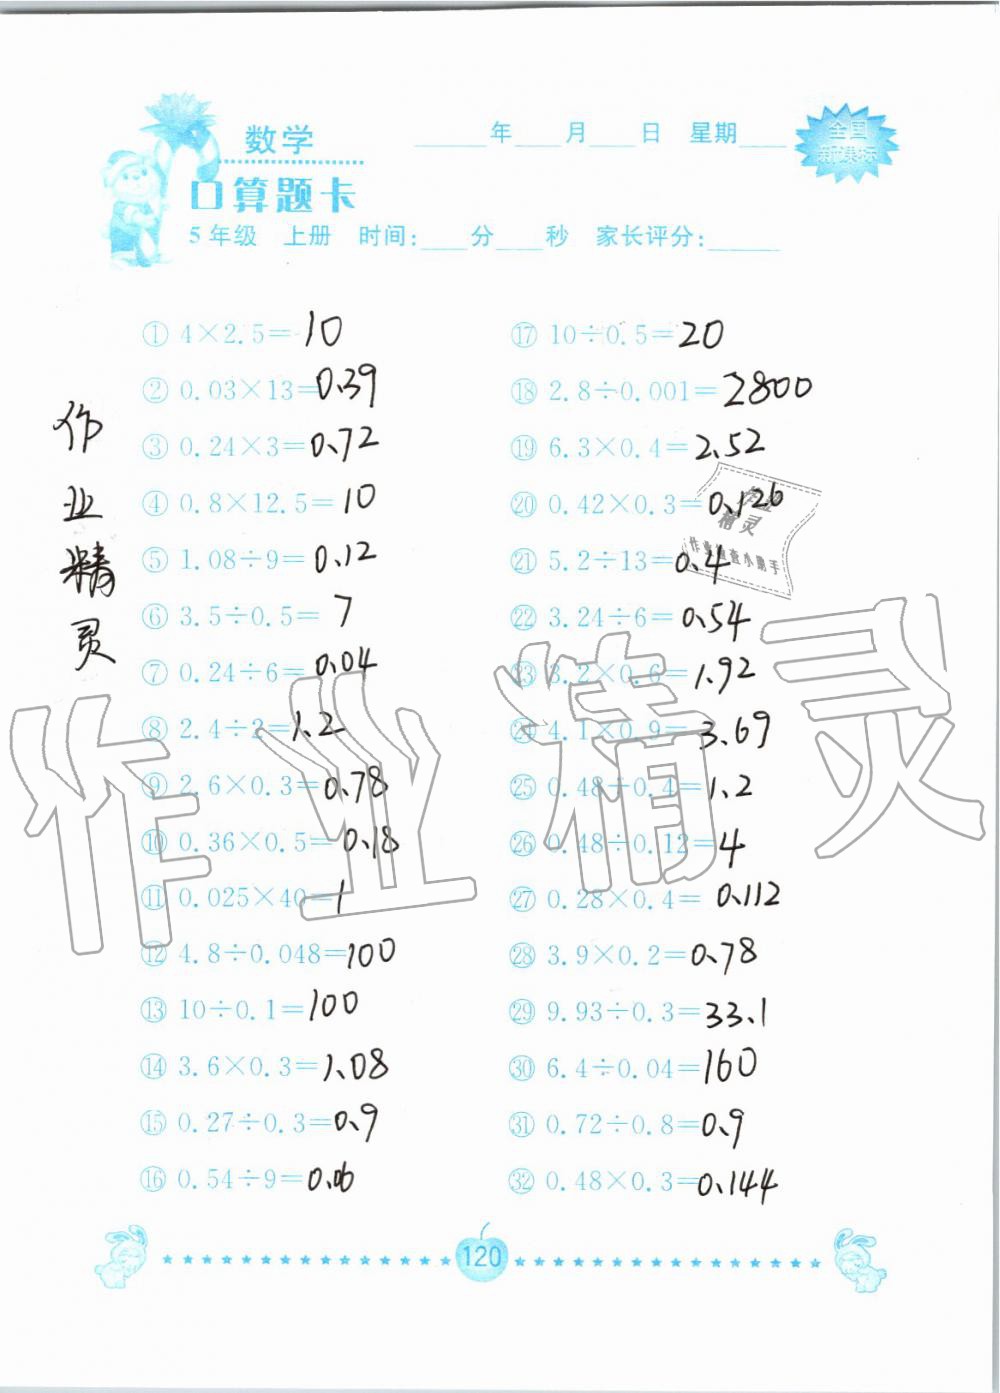 数学
口算题卡
____年____月____日 星期____
全国
新课标
5年级 上册 时间:____分____秒 家长评分:______
① 4×2.5=10
② 0.03×13=0.39
③ 0.24×3=0.72
④ 0.8×12.5=10
⑤ 1.08÷9=0.12
⑥ 3.5÷0.5=7
⑦ 0.24÷6=0.04
⑧ 2.4÷2=1.2
⑨ 2.6×0.3=0.78
⑩ 0.36×0.5=0.18
⑪ 0.025×40=1
⑫ 4.8÷0.048=100
⑬ 10÷0.1=100
⑭ 3.6×0.3=1.08
⑮ 0.27÷0.3=0.9
⑯ 0.54÷9=0.06
⑰ 10÷0.5=20
⑱ 2.8÷0.001=2800
⑲ 6.3×0.4=2.52
⑳ 0.42×0.3=0.126
㉑ 5.2÷13=0.4
㉒ 3.24÷6=0.54
㉓ 3.2×0.6=1.92
㉔ 4.1×0.9=3.69
㉕ 0.48÷0.4=1.2
㉖ 0.48÷0.12=4
㉗ 0.28×0.4=0.112
㉘ 3.9×0.2=0.78
㉙ 9.93÷0.3=33.1
㉚ 6.4÷0.04=160
㉛ 0.72÷0.8=0.9
㉜ 0.48×0.3=0.144
作业精灵
作业精灵
精灵
作业检查小助手
120